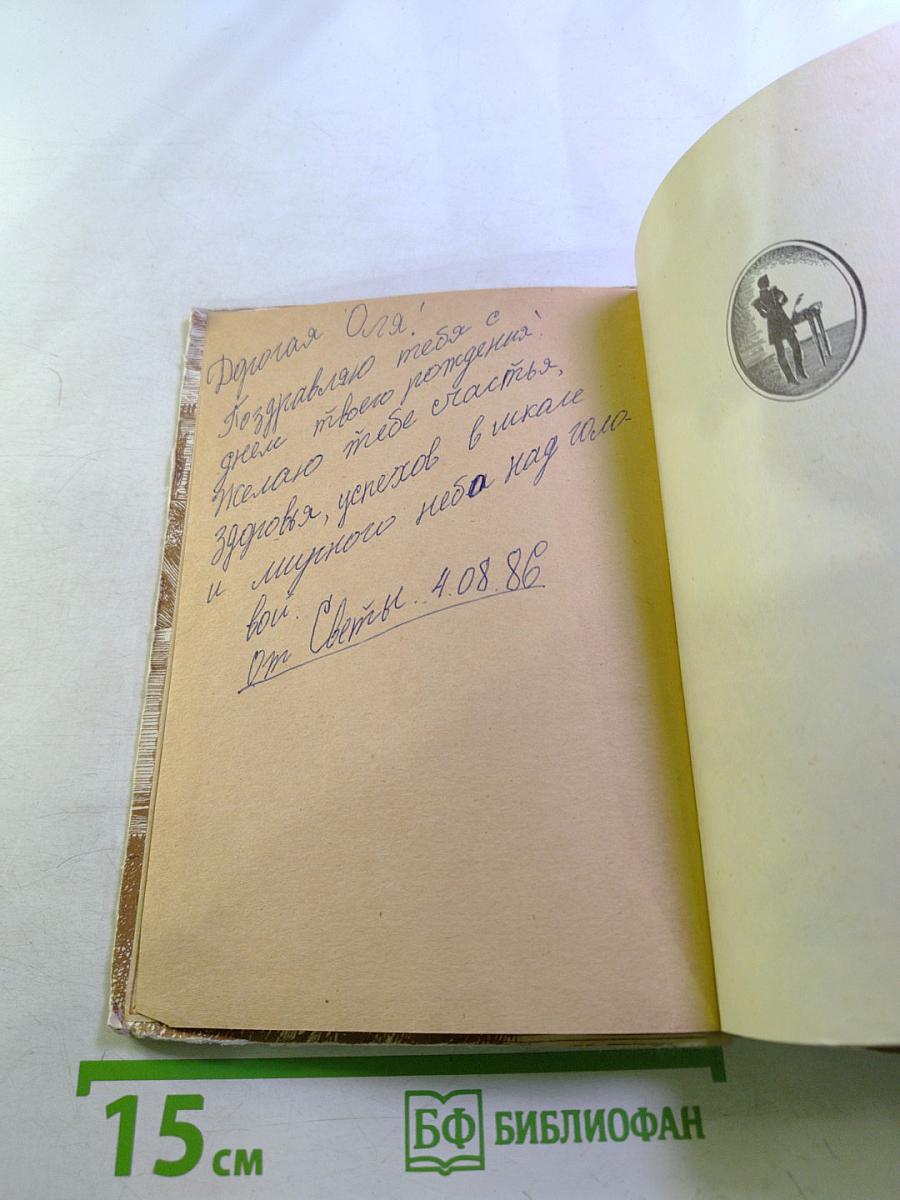 Дорогая Оля!
Поздравляю тебя с
днем твоего рождения!
Желаю тебе счастья,
здоровья, успехов в школе
и мирного неба над голо-
вой.
От Светы. 4.08.86
15 см
БФ БИБЛИОФАН